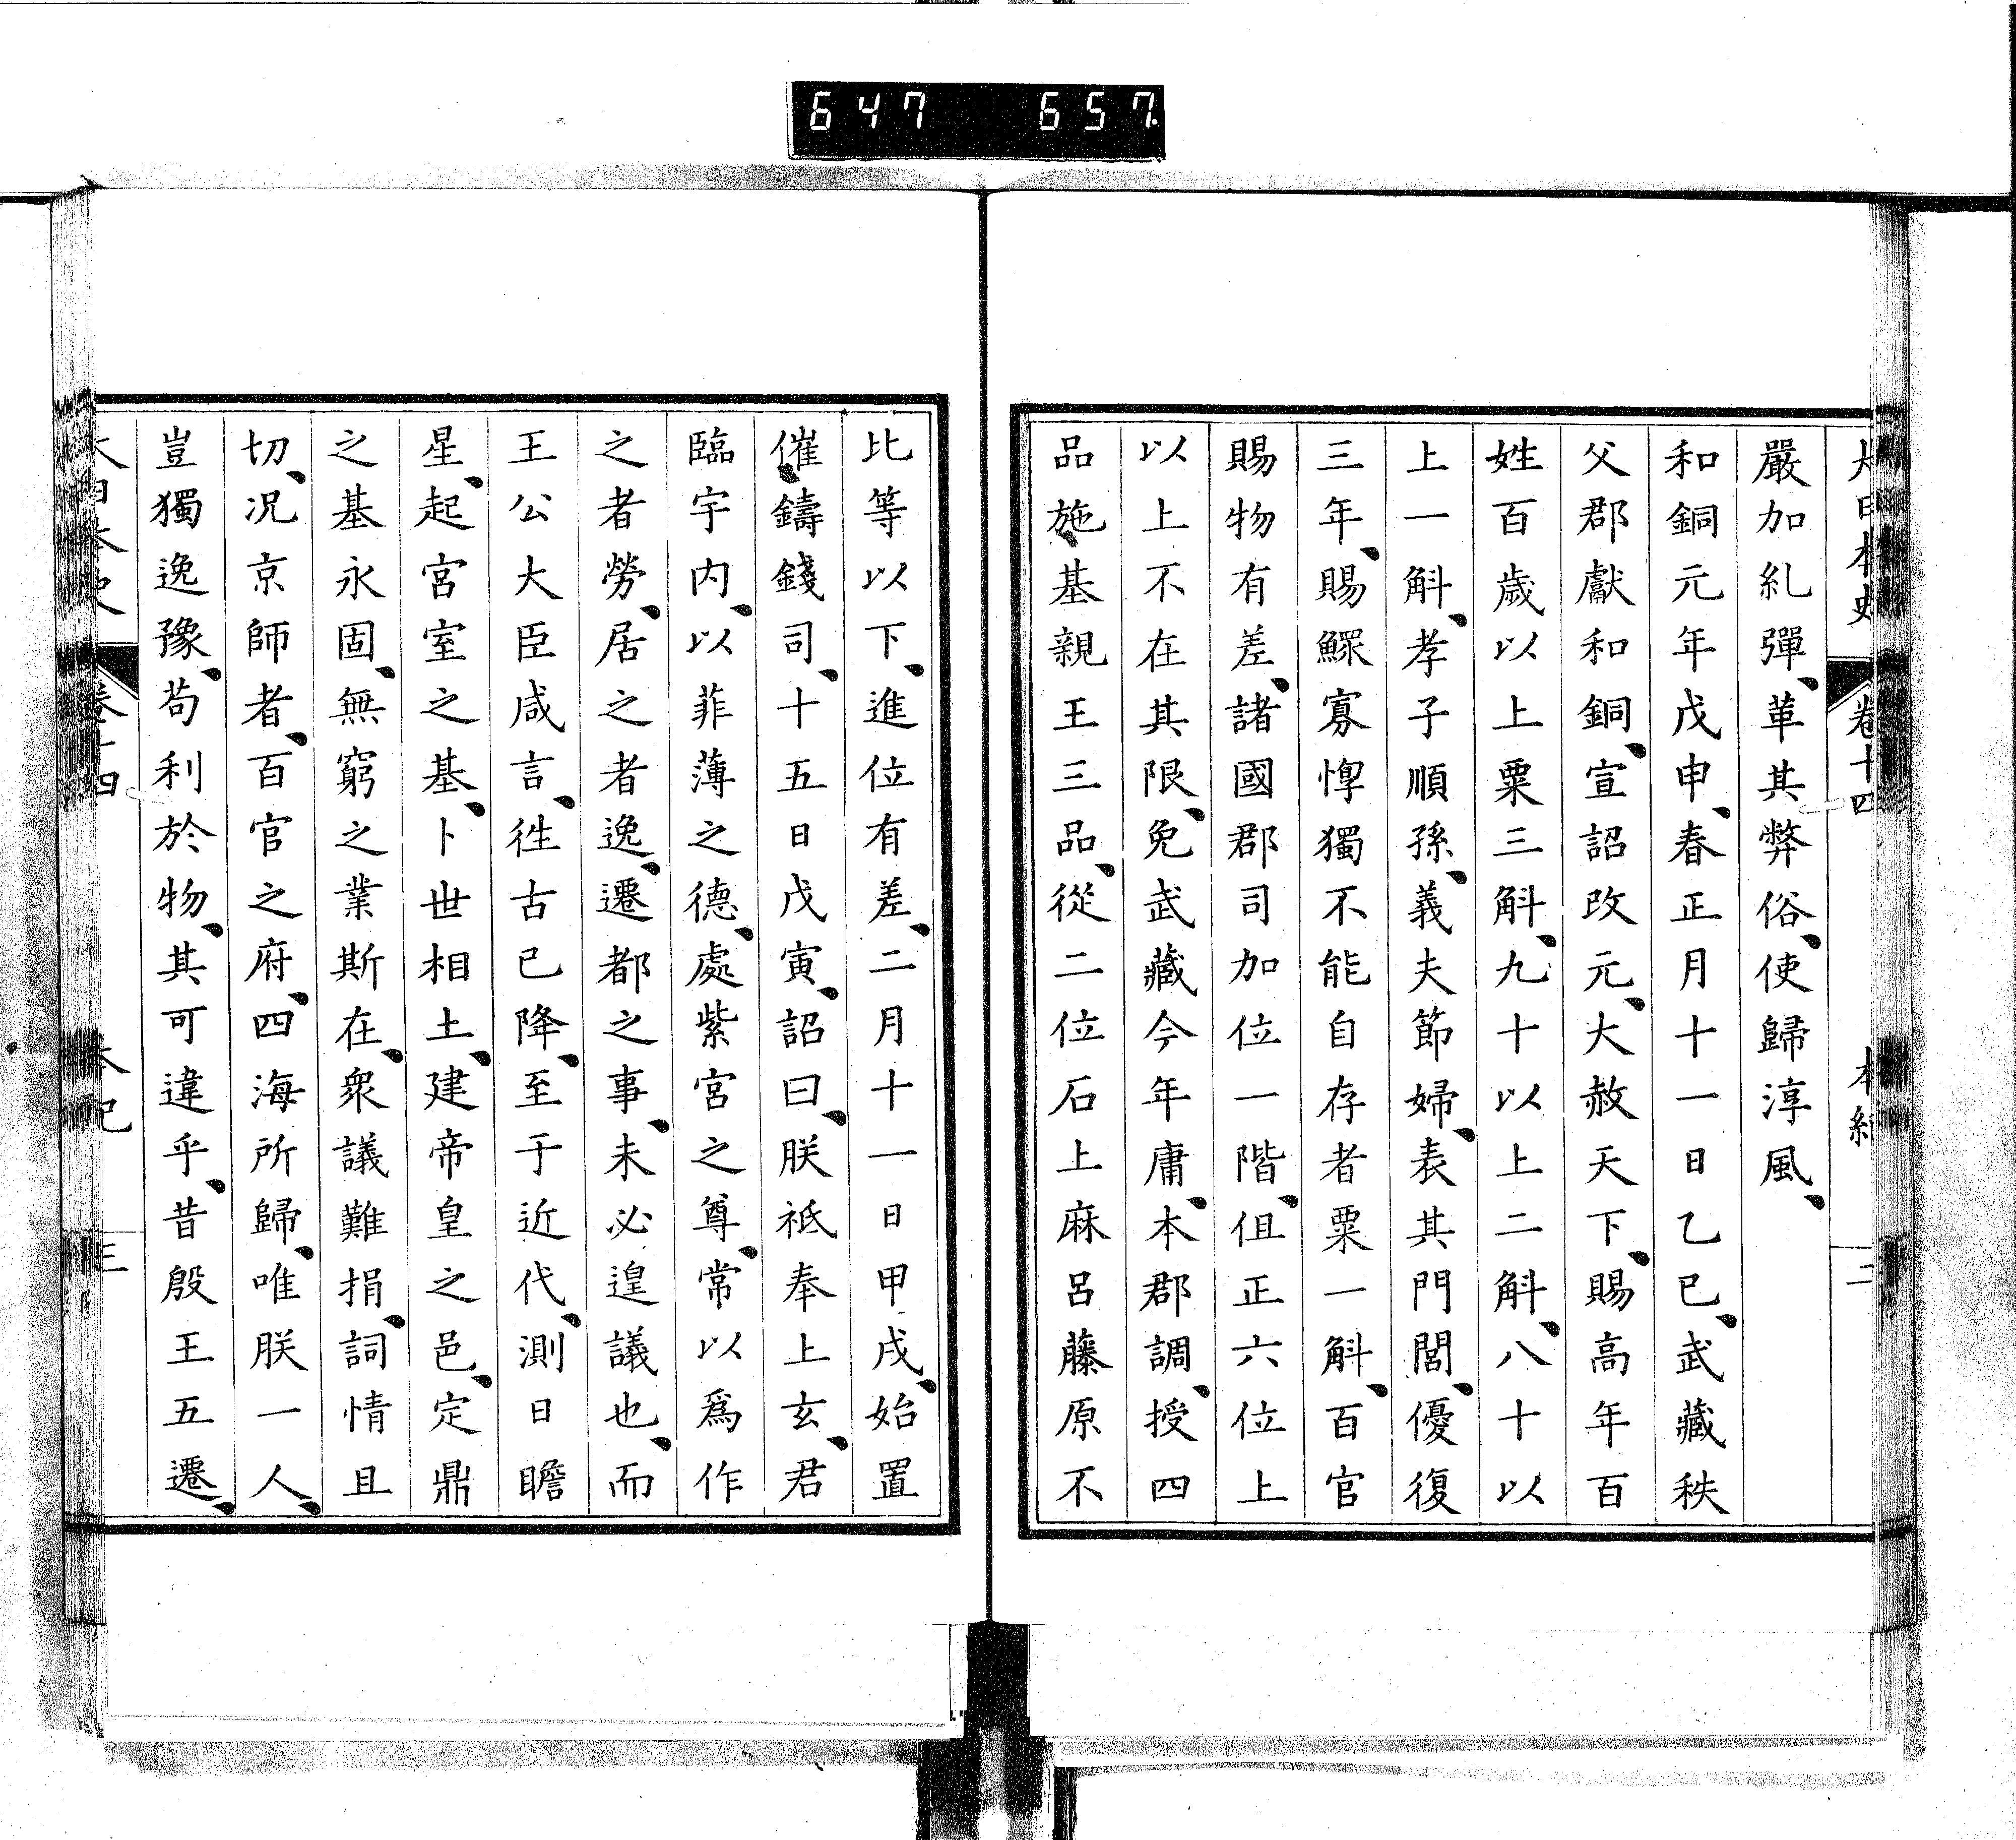 647 657.
大日本史 卷十四 本紀 二
嚴加糺彈、革其弊俗、使歸淳風、
和銅元年戊申、春正月十一日乙巳、武藏秩
父郡獻和銅、宣詔改元、大赦天下、賜高年百
姓百歲以上粟三斛、九十以上二斛、八十以
上一斛、孝子順孫、義夫節婦、表其門閭、優復
三年、賜鰥寡惸獨不能自存者粟一斛、百官
賜物有差、諸國郡司加位一階、但正六位上
以上不在其限、免武藏今年庸、本郡調、授四
品施基親王三品、從二位石上麻呂藤原不
比等以下、進位有差、二月十一日甲戌、始置
催鑄錢司、十五日戊寅、詔曰、朕祗奉上玄、君
臨宇内、以菲薄之德、處紫宮之尊、常以爲作
之者勞、居之者逸、遷都之事、未必遑議也、而
王公大臣咸言、徃古已降、至于近代、測日瞻
星、起宮室之基、卜世相土、建帝皇之邑、定鼎
之基永固、無窮之業斯在、衆議難捐、詞情且
切、況京師者、百官之府、四海所歸、唯朕一人、
豈獨逸豫、苟利於物、其可違乎、昔殷王五遷、
大日本史 卷十四 本紀 三